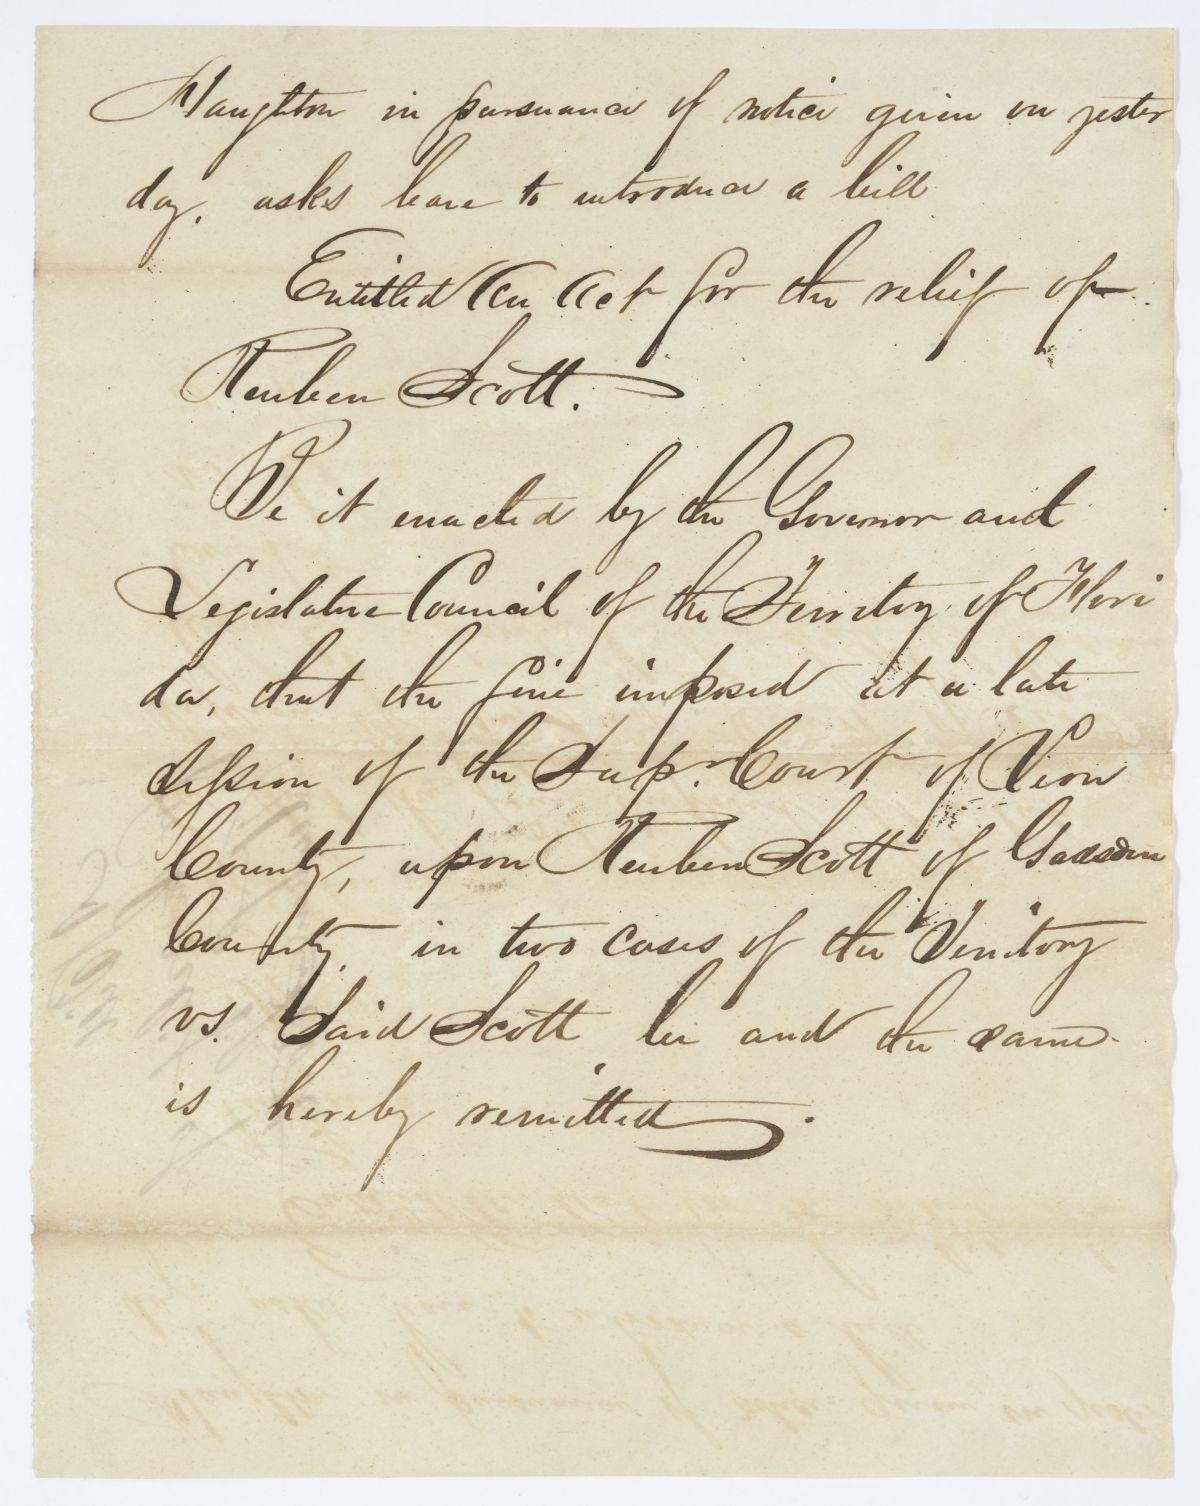 Haughton in pursuance of notice given on yester
day, asks leave to introduce a bill
Entitled An Act for the relief of
Reuben Scott.
Be it enacted by the Governor and
Legislative Council of the Territory of Flori
da, that the fine imposed at a late
session of the Sup.r Court of Leon
County, upon Reuben Scott of Gadsden
County, in two cases of the Territory
vs. Said Scott be and the same
is hereby remitted.